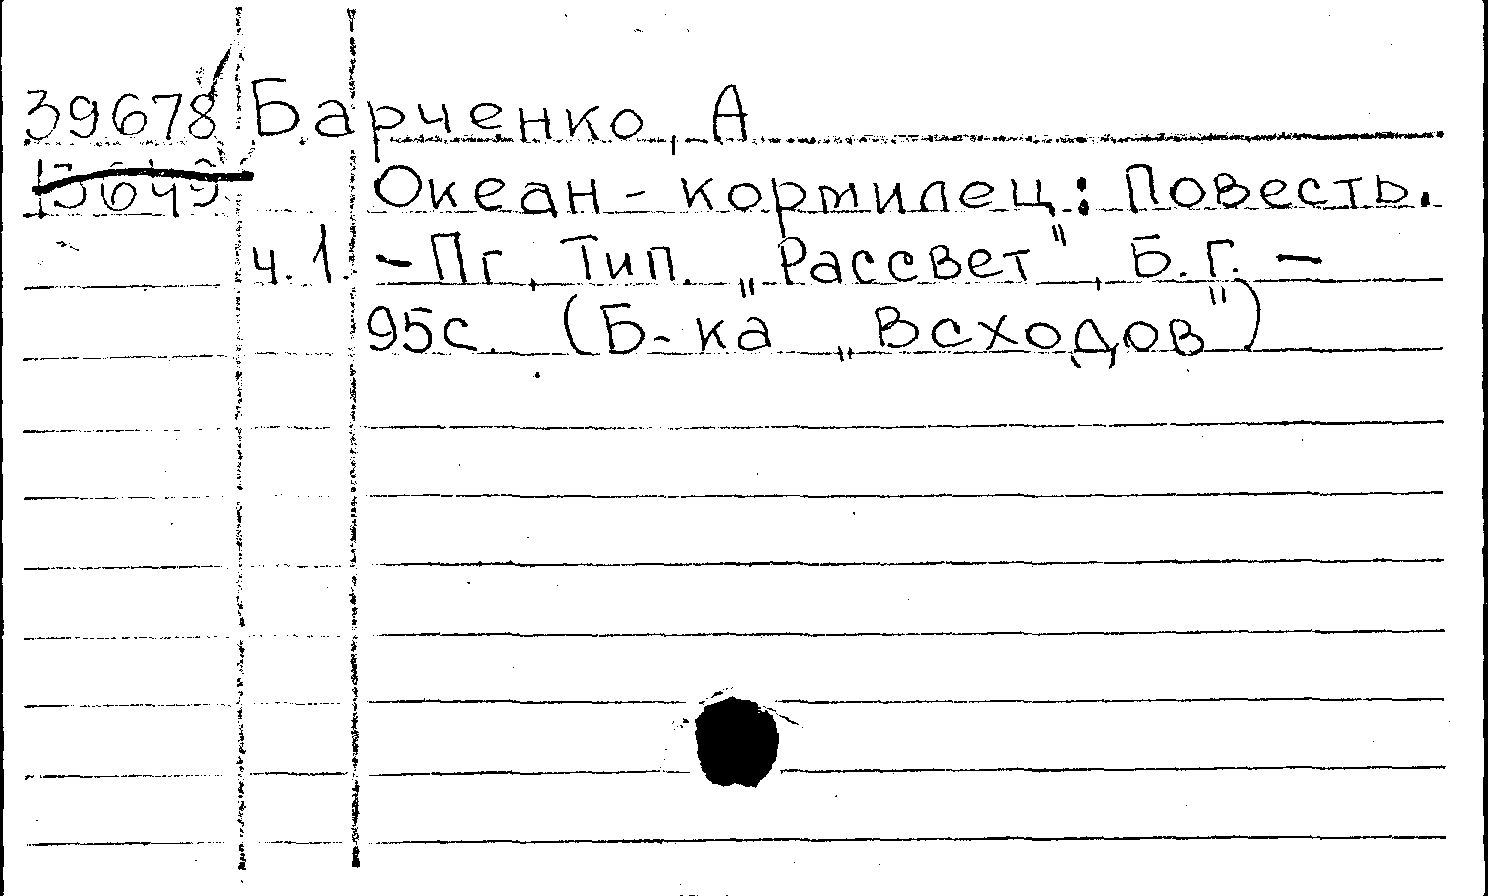 39678 Барченко, А
13649 Океан-кормилец: Повесть.
ч.1. – Пг, Тип. „Рассвет", Б.г. –
95с. (Б-ка „Всходов")